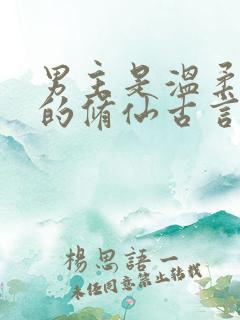 男主是温柔
的修仙古言
楊思語一
未經同意禁止轉載